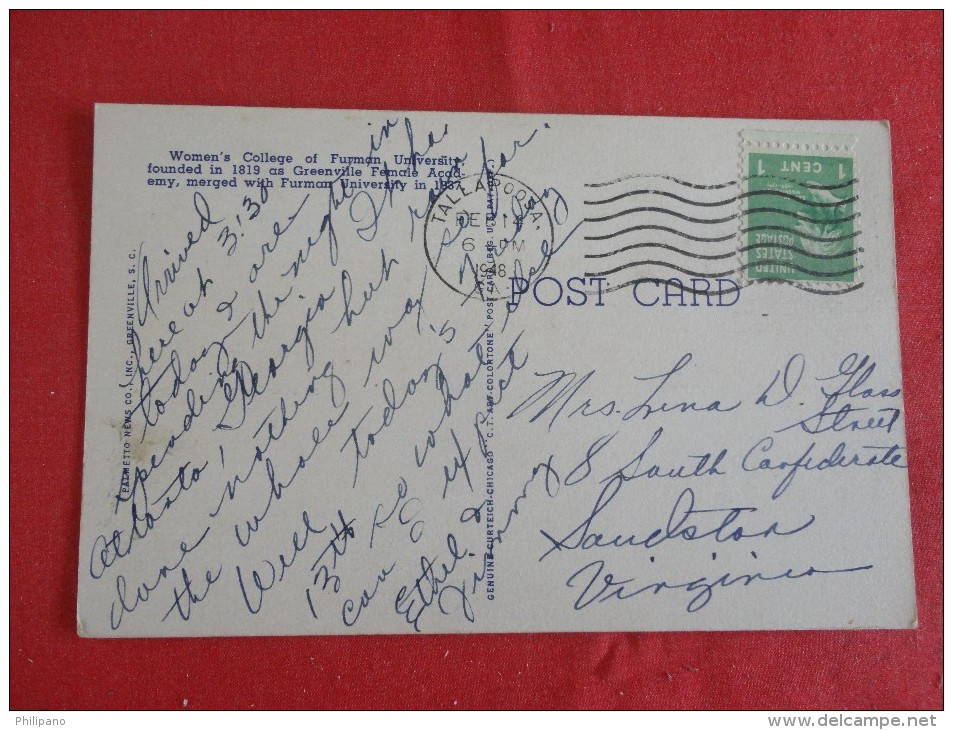 Women's College of Furman University,
founded in 1819 as Greenville Female Acad-
emy, merged with Furman University in 1937.
PALMETTO NEWS CO., INC., GREENVILLE, S. C.
GENUINE CURTEICH-CHICAGO "C. T. ART-COLORTONE" POST CARD (REG. U.S. PAT. OFF.)
Arrived
here at 3:30
today & are
spending the night in
Atlanta, Georgia. It has
done nothing but rain
the whole way so far.
Will today's Friday
13th be what
can expect
Ethel &
Jimmy
TALLAPOOSA,
FEB 14
6 PM
1948
GA.
1 CENT 1
UNITED
STATES
POSTAGE
POST CARD
Mrs. Lena D. Glass
8 South Confederate
Street
Sandston
Virginia
Philipano
www.delcampe.net